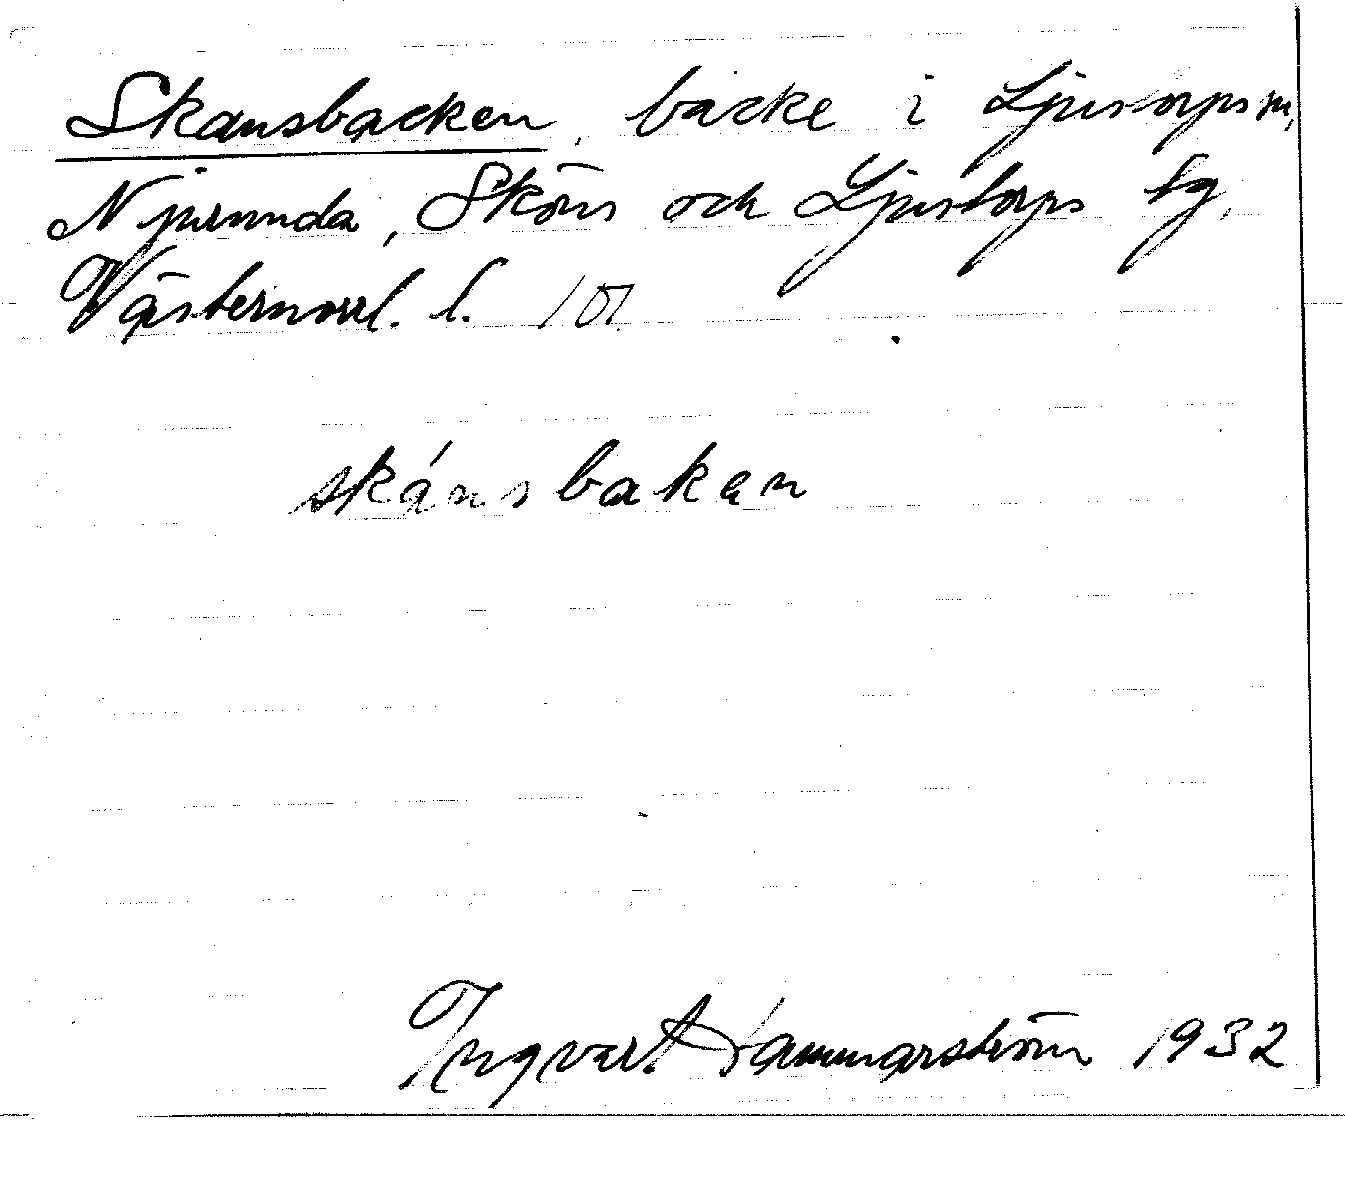 Skansbacken, backe i Ljustorps sn,
Njurunda, Sköns och Ljustorps tg,
Västernorrl. l.
skánsbakan
Ingvart Hammarström 1932